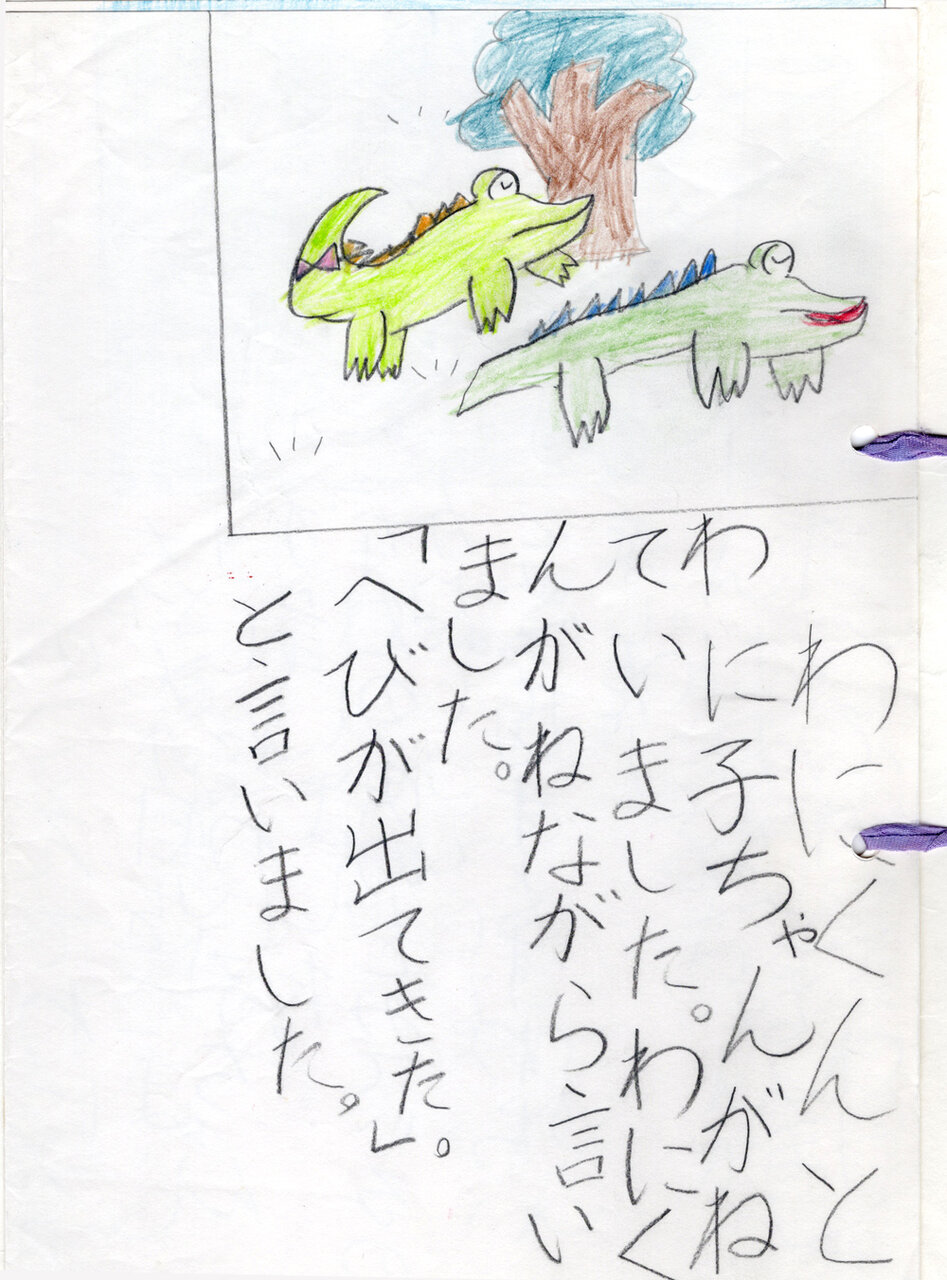 わにくんと
わに子ちゃんがね
ていました。わにく
んがねながら言い
ました。
「へびが出てきた。」
と言いました。